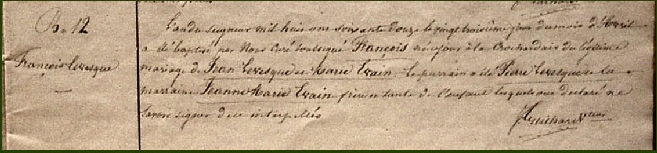 B. 12
François Levesque
L'an du Seigneur mil huit cent soixante douze le vingt troisième jour du mois d'Avril
a été baptisé par Nous Curé soussigné François né ce jour à la Crochardais du légitime
mariage de Jean Levesque et Marie Erain. Le parrain a été Pierre Levesque et la
marraine Jeanne Marie Erain frère et tante de l'enfant lesquels ont déclaré ne
savoir signer de ce interpellés
Guichard